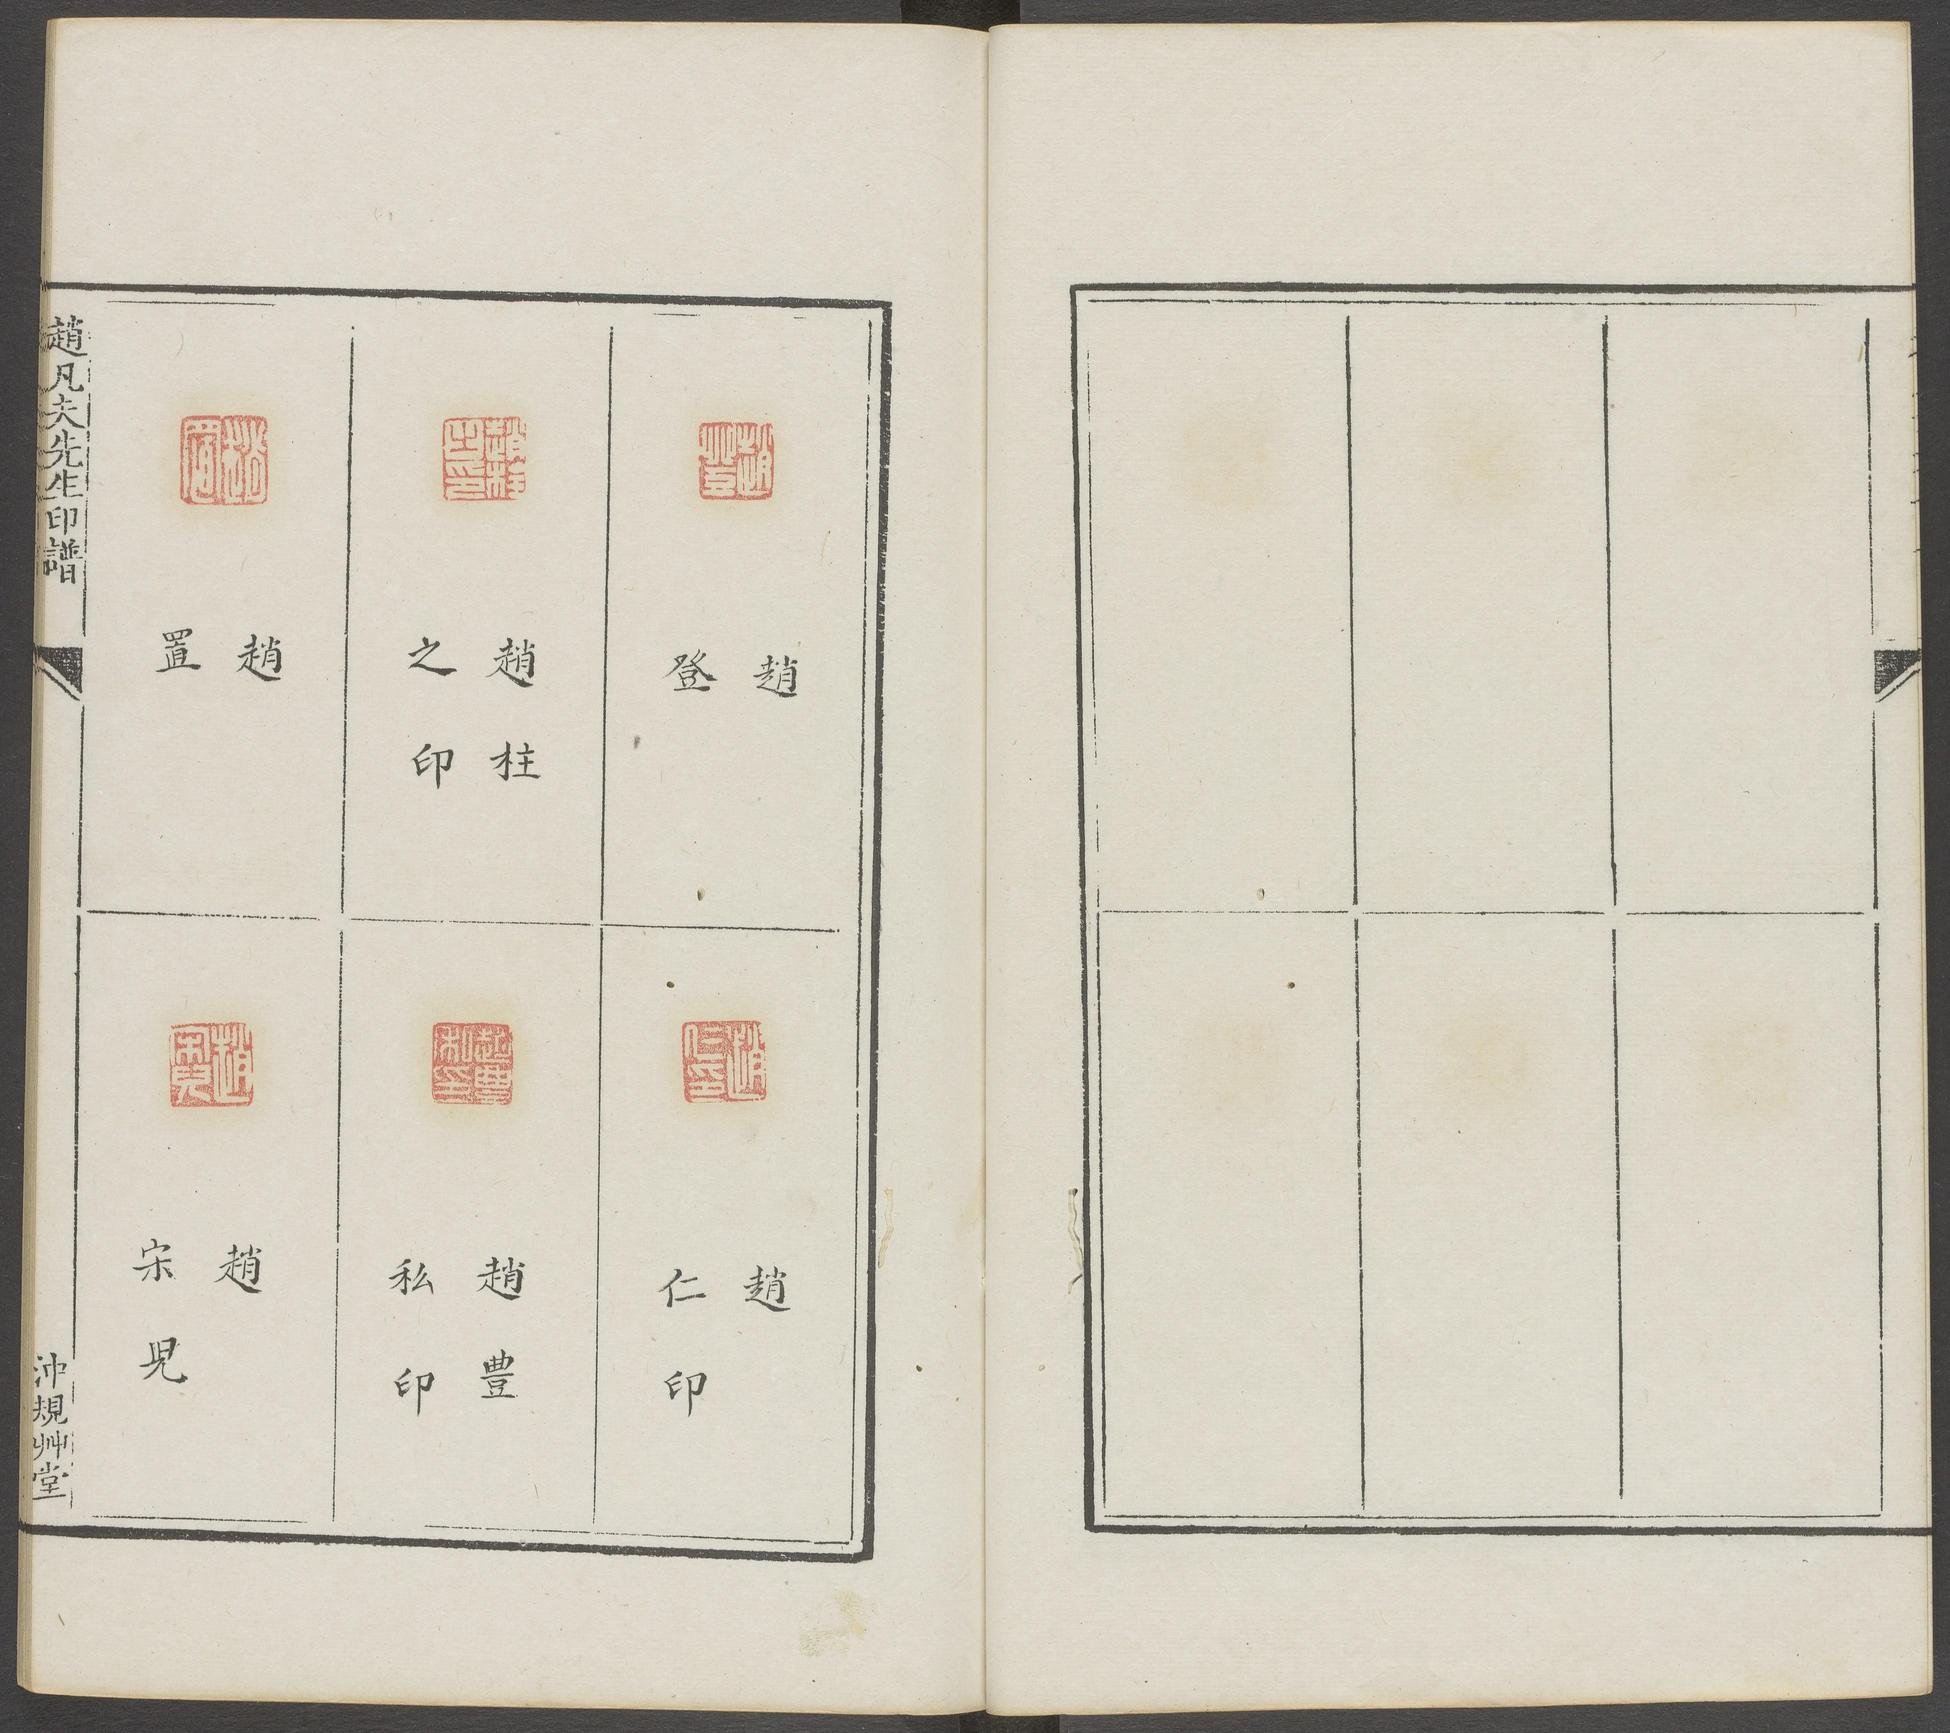 趙
登
趙柱
之印
趙
置
趙
仁印
趙豊
私印
趙
宋兒
趙凡夫先生印譜
沖規艸堂